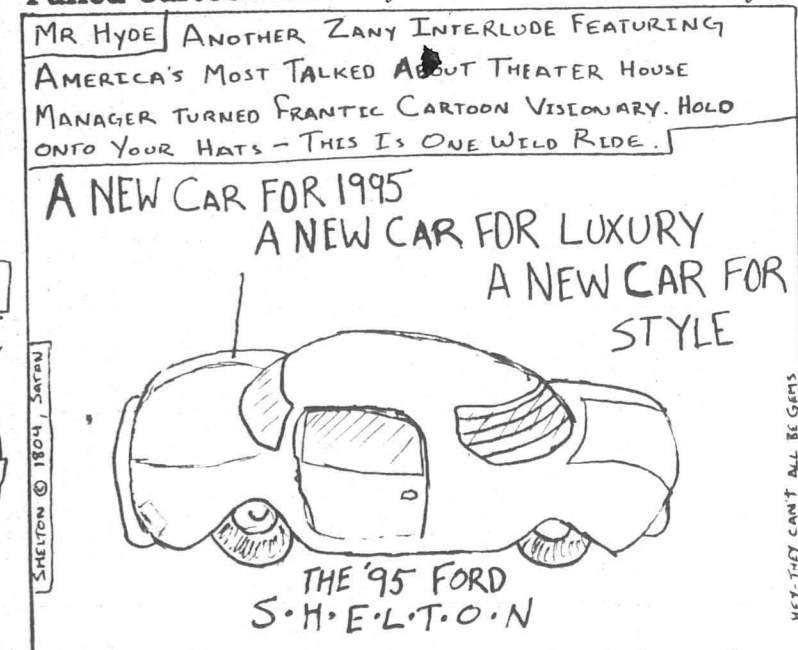 MR HYDE ANOTHER ZANY INTERLUDE FEATURING
AMERICA'S MOST TALKED ABOUT THEATER HOUSE
MANAGER TURNED FRANTIC CARTOON VISIONARY. HOLD
ONTO YOUR HATS - THIS IS ONE WILD RIDE.
A NEW CAR FOR 1995
A NEW CAR FOR LUXURY
A NEW CAR FOR
STYLE
SHELTON © 1804, SATAN
HEY-THEY CAN'T ALL BE GEMS
THE '95 FORD
S·H·E·L·T·O·N